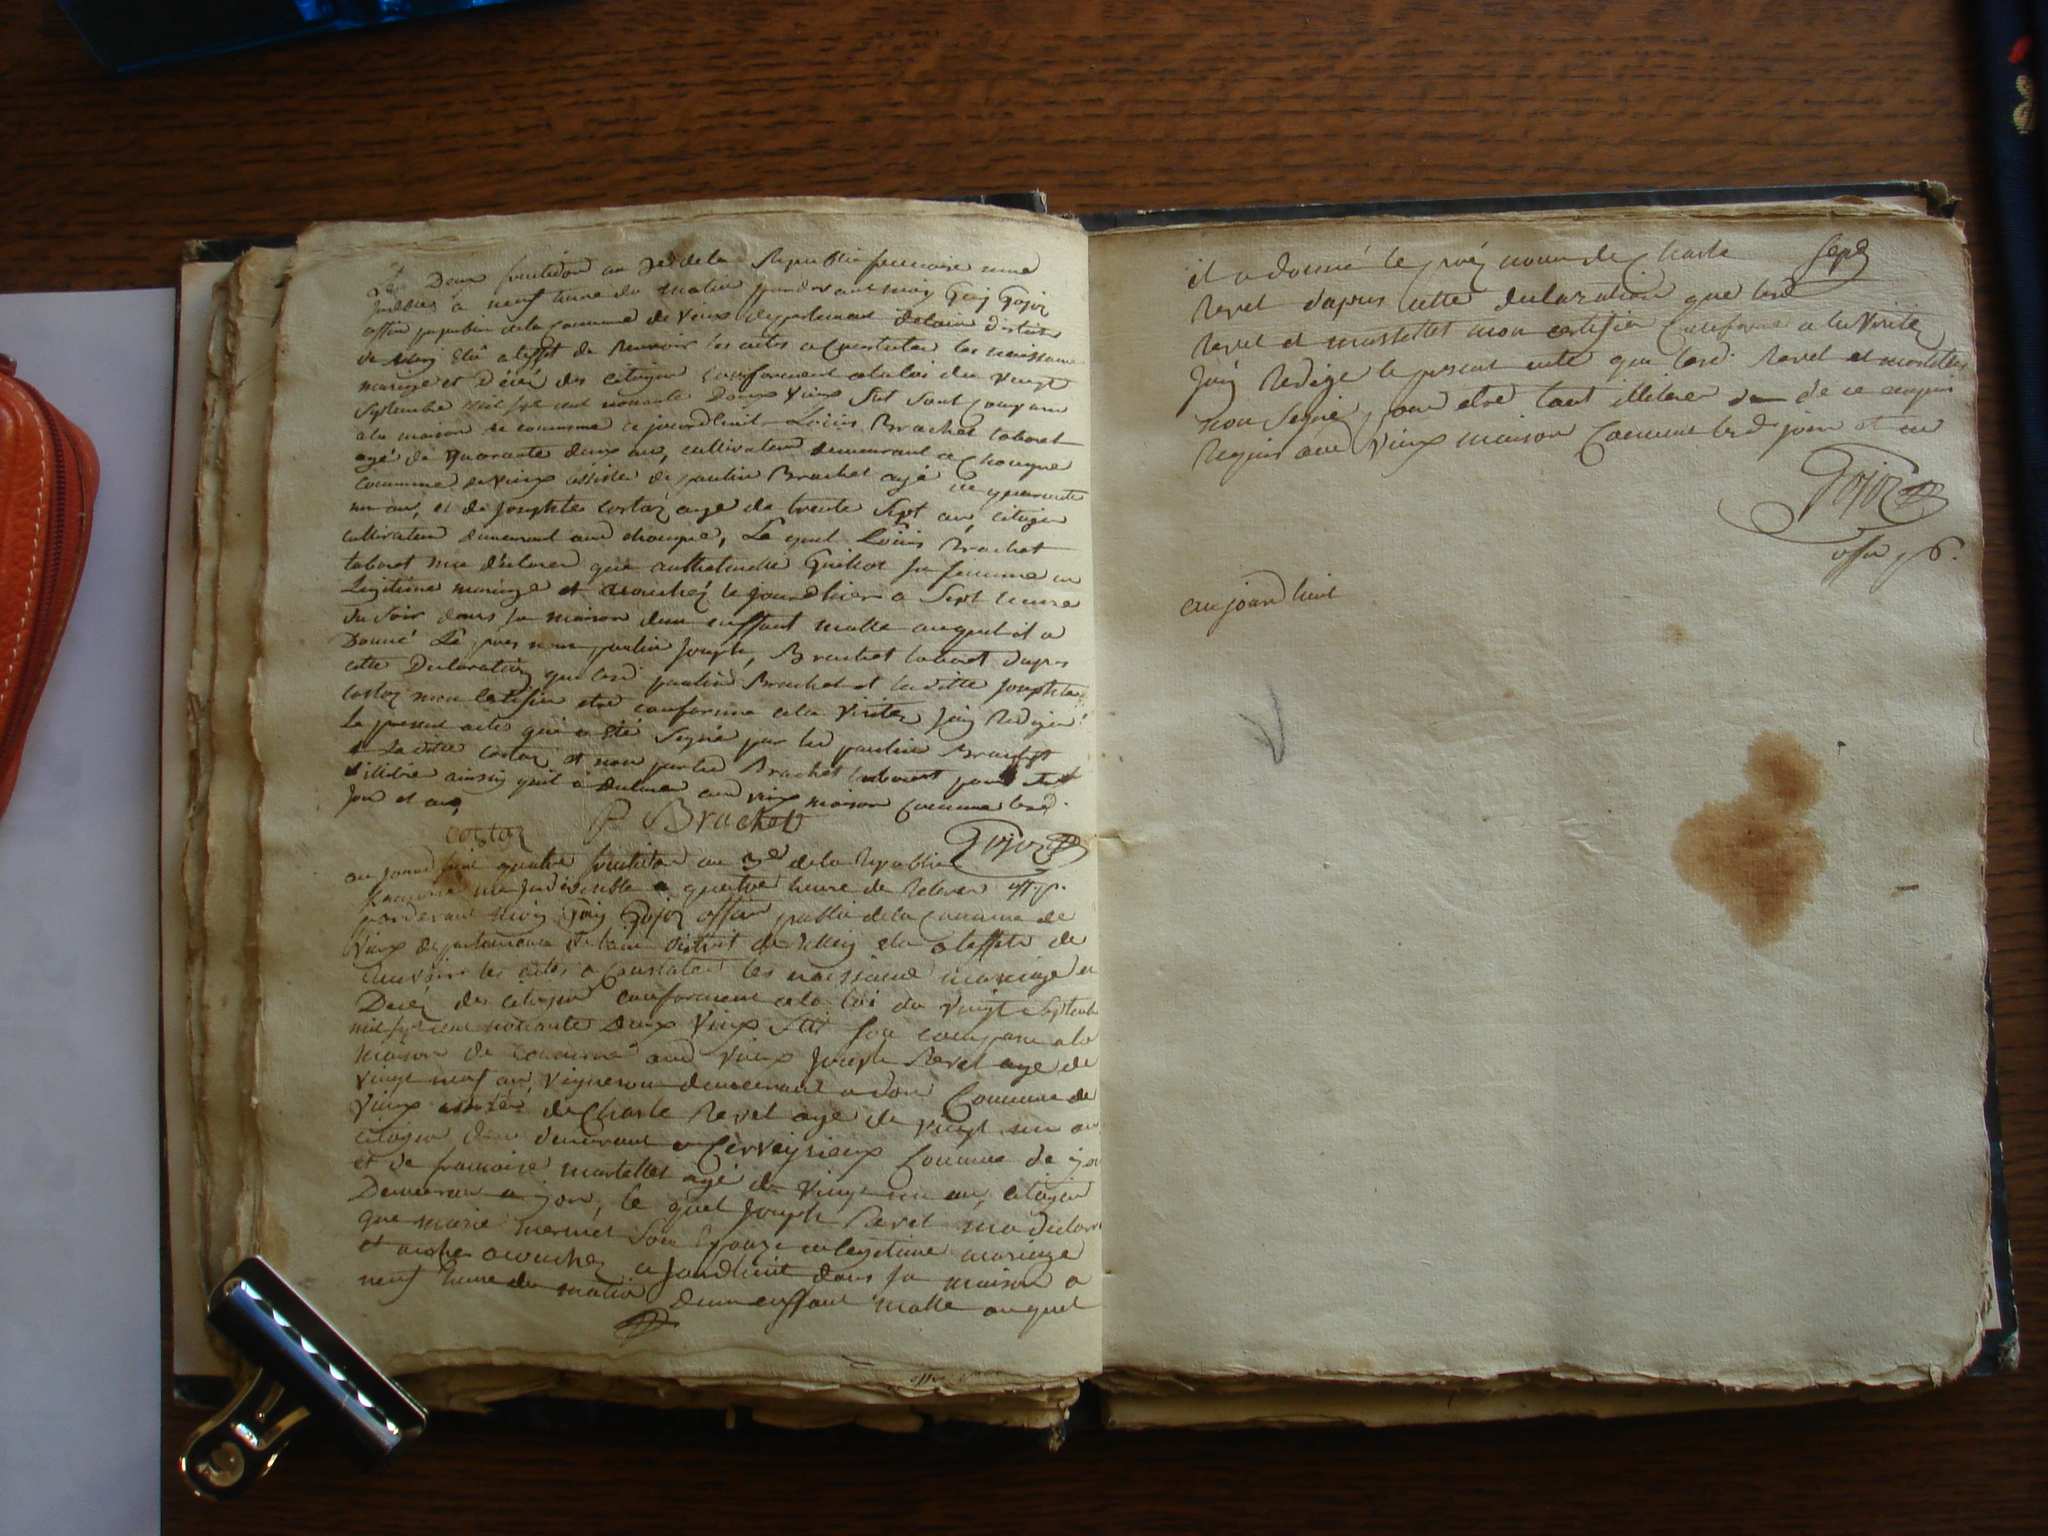 Le Deux fructidor an 3e de la Republi francaise une
a neuf heure du matin pardevant moy Guy Gojoz
offier publi de la Commune de Vieux departement delain district
de élu a leffet de Recevoir les actes a Constater les naissance
mariage et décéz des citoyen conforment alaloi du vingt
Septembre mil sept cent nonante Deux Vieux Stil Sont Comparu
ala maison de commune ce jourdhuit Loüis Brachet tabouret
agé de quarante deux an, cultivateur demeurant a Chougne
commune de vieux assisté de paulin Brachet agé de quarante
un an, et de Josephte costaz agé de trente Sept an citoyen
cultivateur demeurant aud chougne, Le quel Loüis Brachet
tabouret ma déclarer que Guillot sa femme en
Legitime mariage et acouchéz le jourdhier a Sept heure
du Soir dans sa maison dun enffant malle auquel il a
Donné Le prés nom paulin Joseph, Brachet tabouret dapres
cette Declaration que lesd paulin Brachet et laditte Josephte
Costaz mon certifier etre conforme ala Véritez Jaÿ Rediger
Le present acte qui a été Signé par led paulin Brachet
et La ditte Costaz et non par led Brachet tabouret pour etre
illitéré ainsy quil a déclarer aud vieux maison Commune lesd.
Jour et an,
costaz P Brachet Gojoz
au jourdhuit quatre fructidor an 3e de la Republi
francaise une Jndivisible a quatre heure de Relever off. p.
pardevant moy Guy Gojoz offier publi de la Commune de
Vieux departement delain district de élu a leffet de
Recevoir les actes a Constater les naissance mariage et
Decéz des citoyen conforment ala loi du vingt Septembre
mil sept cent nonante Deux Vieux Stil Son comparu ala
maison de commune aud vieux Joseph Revel age de
vingt neuf an, vigneron demeurant a don Commune de
Vieux assisté de Charle Revel age de vingt un an
citoyen demeurant a Cerveyrieux Commune de yon
et de francoise martellet agé de vingt un an, citoyen
Demeurant a yon, le quel Joseph Revel ma declarer
que marie mermet Son Epouze en legitime mariage
et acouchez ce jourdhuit dans sa maison a
neuf heure du matin dun enffant malle auquel
il a donné le préz nom de Charle
Revel dapres cette declaration que lesd
Revel et martellet mon certifier Conforme a la Véritez
Jaÿ Redige le present acte que lesd. Revel et martellet
non Signé pour etre tout illeterer de ce enquis
Requis aud Vieux maison Commune lesd jour et an
Gojoz
offier p.
aujourdhuit